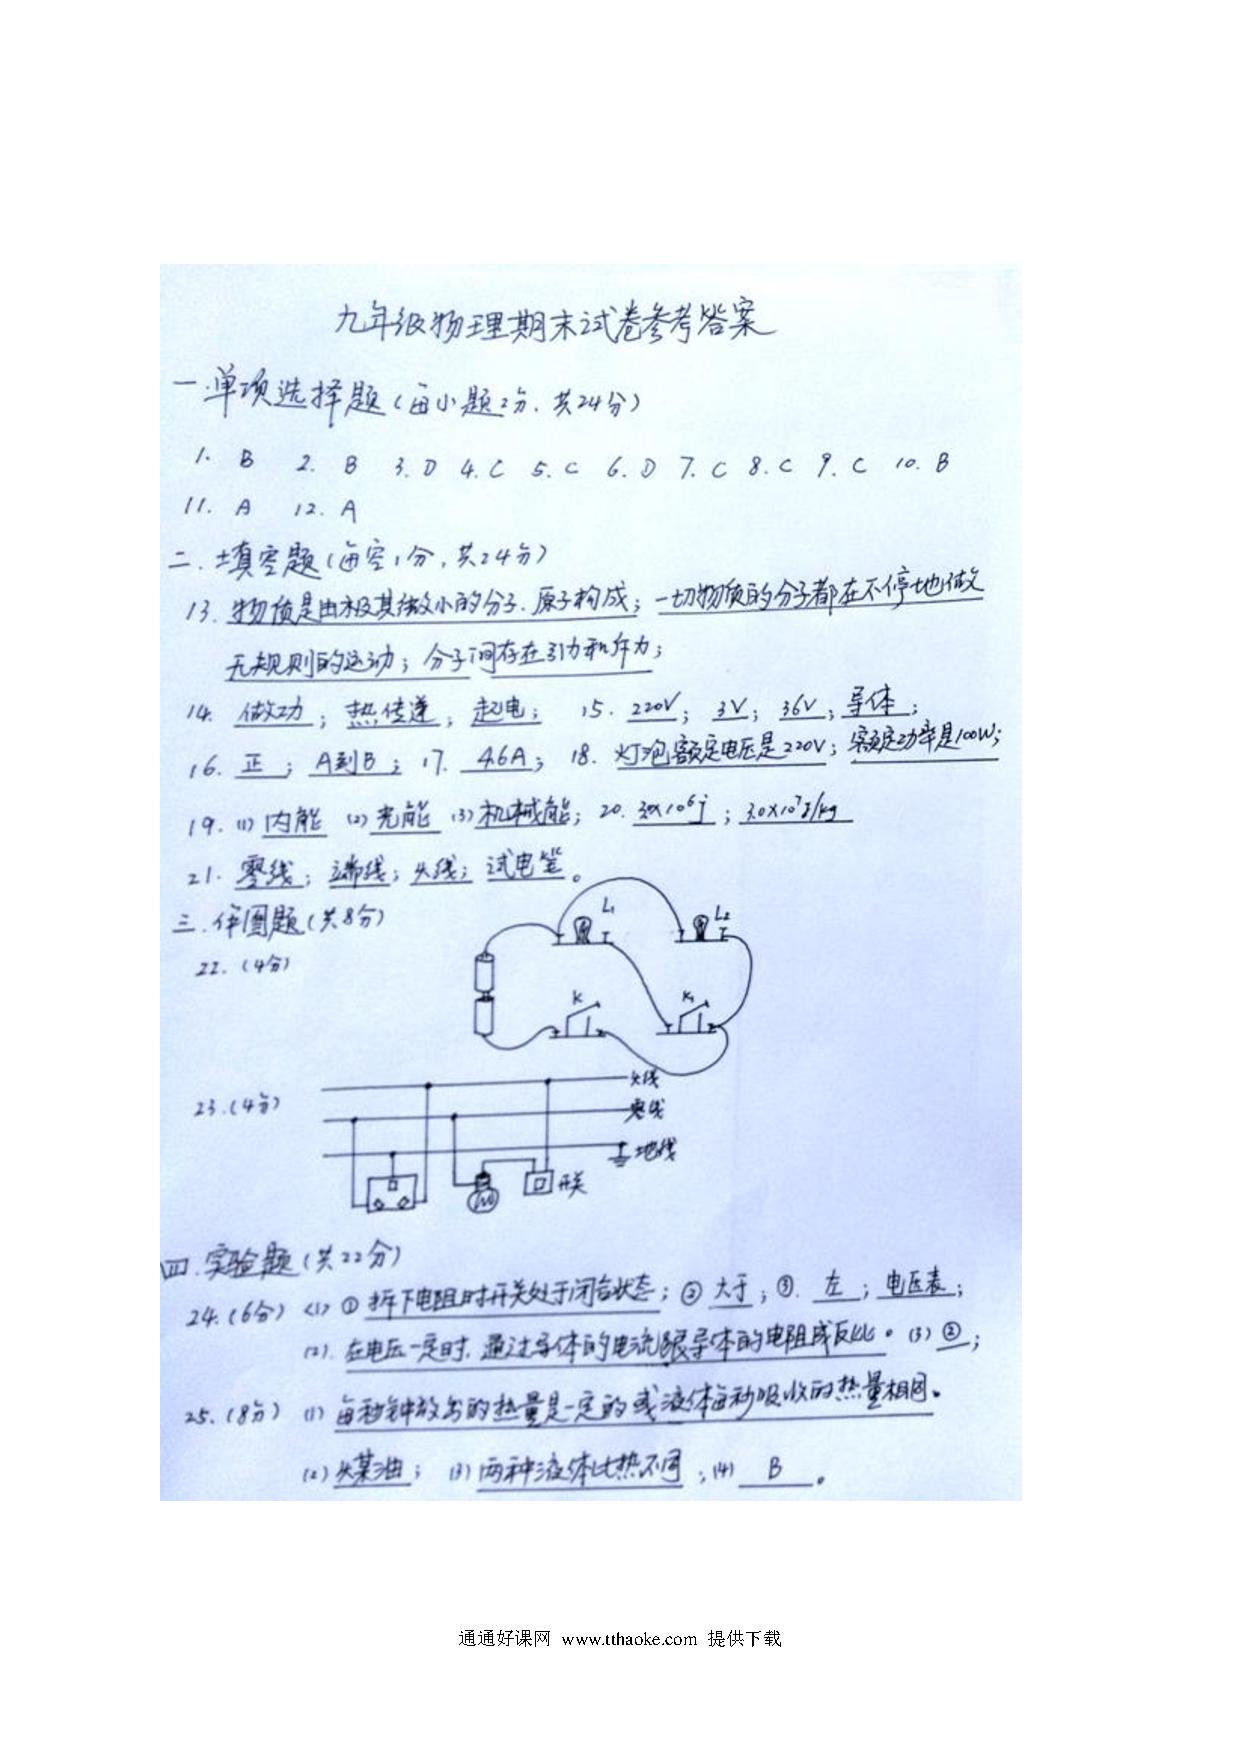 九年级物理期末试卷参考答案
一.单项选择题(每小题2分.共24分)
1. B 2. B 3. D 4. C 5. C 6. D 7. C 8. C 9. C 10. B
11. A 12. A
二.填空题(每空1分,共24分)
13. 物质是由极其微小的分子.原子构成;一切物质的分子都在不停地做
无规则的运动;分子间存在引力和斥力;
14. 做功;热传递;起电; 15. 220V; 3V; 36V;导体;
16. 正; A到B; 17. 4.6A; 18. 灯泡额定电压是220V;额定功率是100W;
19. (1) 内能 (2) 光能 (3) 机械能; 20. 3.0×10⁶J; 3.0×10⁷J/kg
21. 零线;端线;火线;试电笔。
三.作图题(共8分)
22.(4分)
L₁ L₂
K K₁
23.(4分)
火线
零线
地线
开关
四.实验题(共22分)
24.(6分) (1) ① 拆下电阻时开关处于闭合状态; ② 大于; ③. 左;电压表;
(2). 在电压一定时.通过导体的电流跟导体的电阻成反比。(3) ②;
25.(8分) (1) 每秒钟放出的热量是一定的或液体每秒吸收的热量相同。
(2) 煤油; (3) 两种液体比热不同; (4) B 。
通通好课网 www.tthaoke.com 提供下载